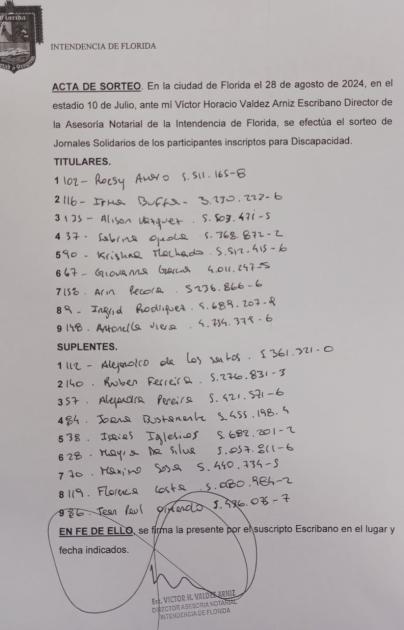 Florida
INTENDENCIA DE FLORIDA
ACTA DE SORTEO. En la ciudad de Florida el 28 de agosto de 2024, en el
estadio 10 de Julio, ante mí Víctor Horacio Valdez Arniz Escribano Director de
la Asesoría Notarial de la Intendencia de Florida, se efectúa el sorteo de
Jornales Solidarios de los participantes inscriptos para Discapacidad.
TITULARES.
1 102 - 5.511.165-8
2 116 - Irma 3.230.227-6
3 135 - Alison Vazquez. 5.503.471-5
4 37 - Sabrina 5.368.872-2
5 90 - Krishna Machado. 5.512.415-6
6 67 - Giovanna Garcia 4.011.247-5
7 158. 5236.866-6
8 9 - Ingrid Rodriguez. 5.689.207-2
9 148. Antonella Viera. 4.734.379-6
SUPLENTES.
1 112 - Alejandro de los Santos. 5361.321-0
2 140. Ruben Ferreira. 5.276.831-3
3 57. Alejandra Pereira. 5.421.571-6
4 84. Joana Bustamante 5.455.198.4
5 38. Isaias Iglesias. 5.682.201-2
6 28. Mayra Da Silva 5.057.811-6
7 70. Maximo Sosa 5.440.734-5
8 119. Florencia Costa. 5.080.984-2
9 86. Jean Paul 5.436.075-7
EN FE DE ELLO, se firma la presente por el suscripto Escribano en el lugar y
fecha indicados.
Esc. VICTOR H. VALDEZ ARNIZ
DIRECTOR ASESORIA NOTARIAL
INTENDENCIA DE FLORIDA